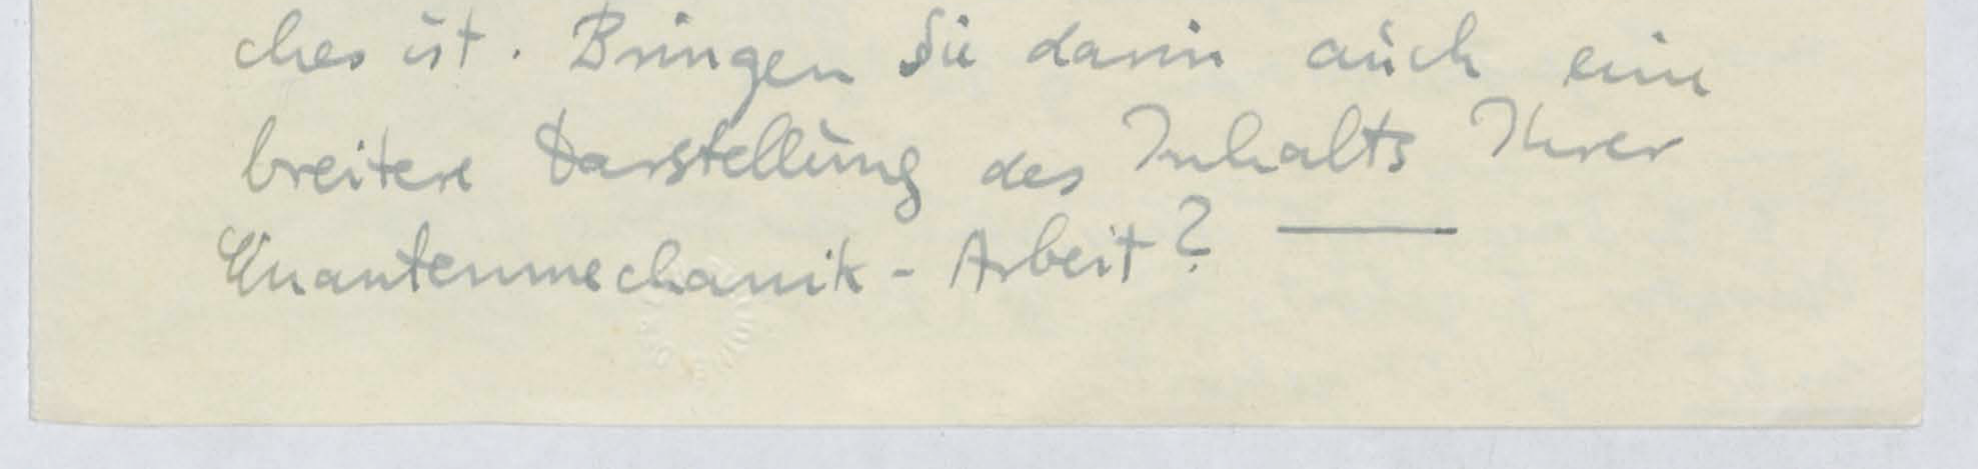 ches ist. Bringen Sie darin auch eine
breitere Darstellung des Inhalts Ihrer
Quantenmechanik-Arbeit? —